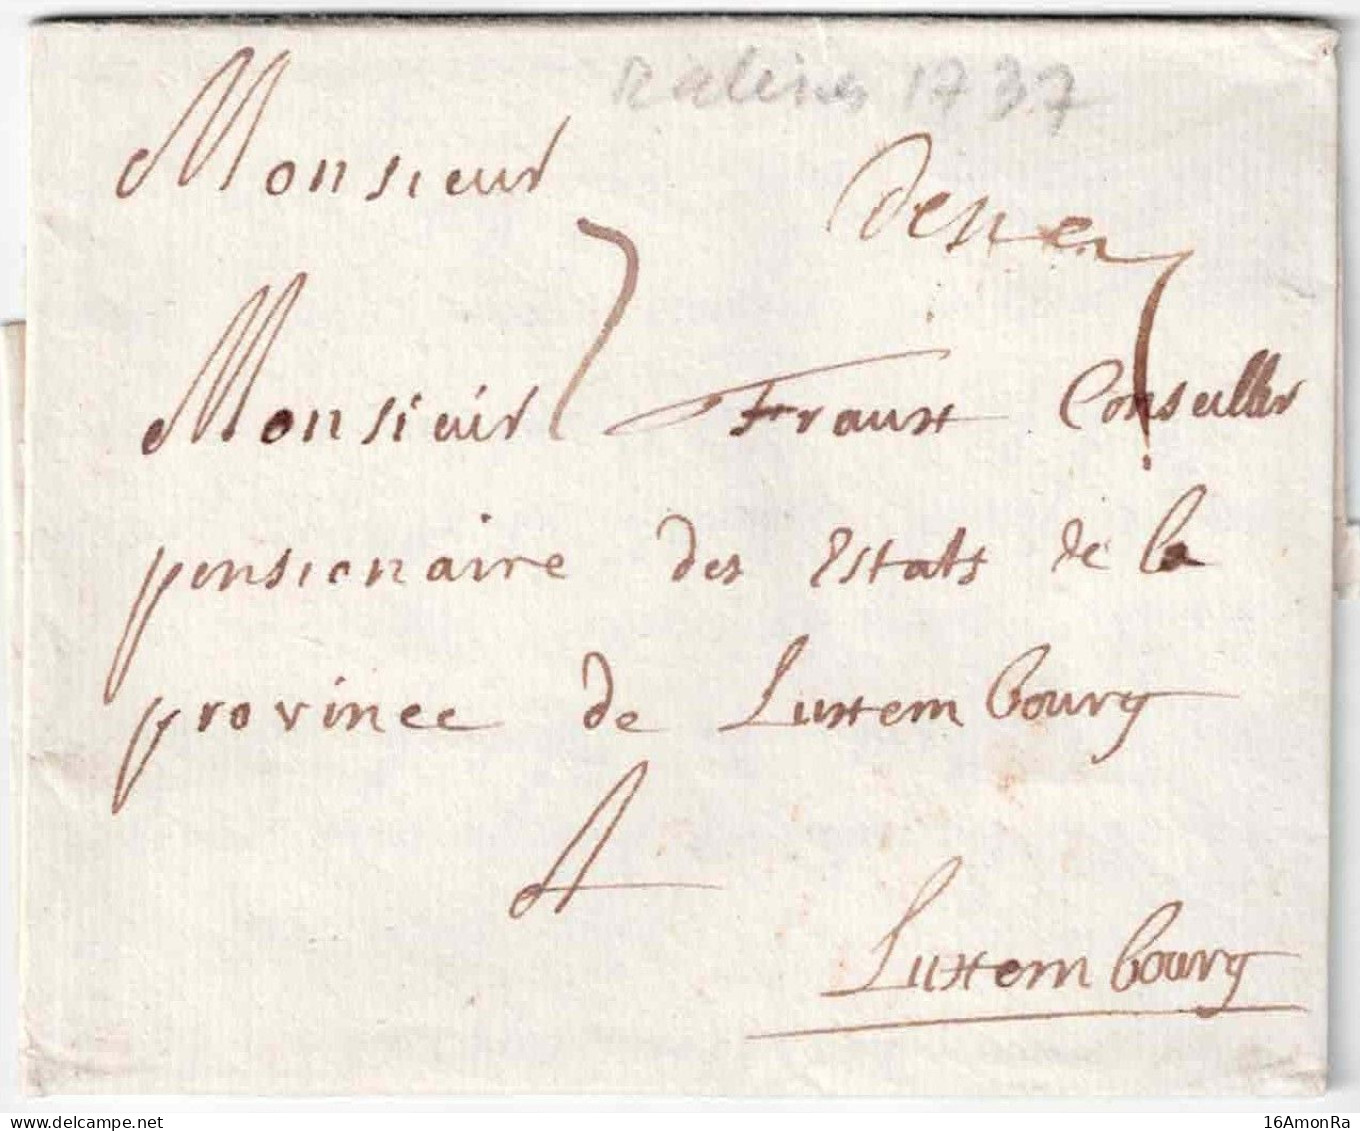 Malines 1737
Monsieur
7
Monsieur Fraux Conseiller
pensionaire des Estats de la
province de Luxembourg
A
Luxembourg
16AmonRa